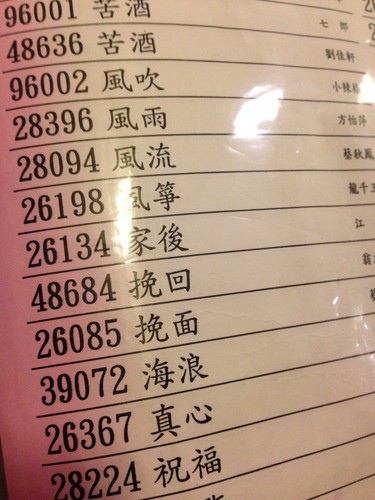 96001 苦酒
48636 苦酒 七郎
96002 風吹 劉佳軒
28396 風雨 小辣椒
28094 風流 方怡萍
26198 風箏 蔡秋鳳
26134 家後 龍千玉
48684 挽回 江
26085 挽面 翁
39072 海浪
26367 真心
28224 祝福